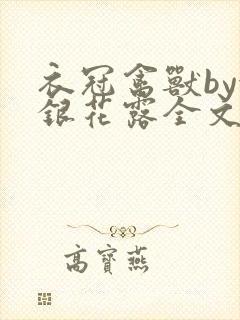 衣冠禽獸by
銀花露全文
高寶燕